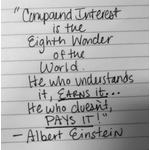 "Compound Interest
is the
Eighth Wonder
of the
World.
He who understands
it, EARNS it...
He who doesn't,
PAYS IT!"
- Albert Einstein